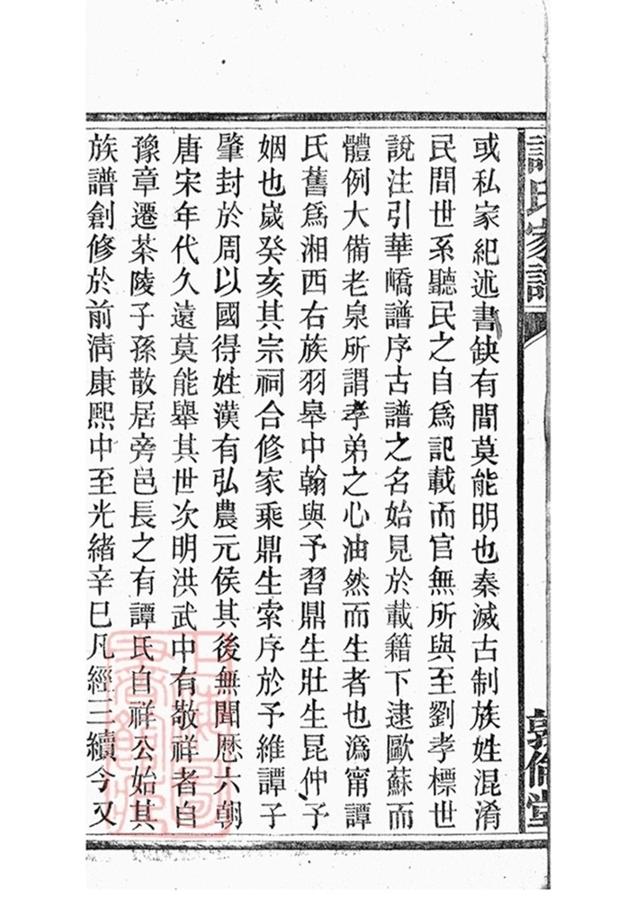 譚氏家譜
敦倫堂
或私家紀述書缺有間莫能明也秦滅古制族姓混淆
民間世系聽民之自爲記載而官無所與至劉孝標世
說注引華嶠譜序古譜之名始見於載籍下逮歐蘇而
體例大備老泉所謂孝弟之心油然而生者也潙甯譚
氏舊爲湘西右族羽皋中翰與予習鼎生壯生昆仲予
姻也嵗癸亥其宗祠合修家乘鼎生索序於予維譚子
肇封於周以國得姓漢有弘農元侯其後無聞歷六朝
唐宋年代久遠莫能舉其世次明洪武中有敬祥者自
豫章遷茶陵子孫散居旁邑長之有譚氏自祥公始其
族譜創修於前淸康熙中至光緒辛巳凡經三續今又